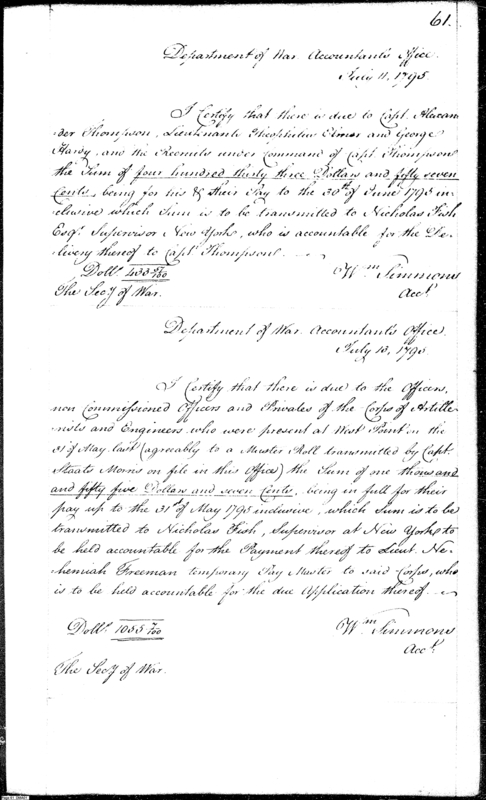 61.
Department of War Accountant's Office
July 11, 1795
I Certify that there is due to Capt. Alexan
der Thompson, Lieutenants Theophilus Elmer and George
and the Recruits under command of Capt. Thompson
the Sum of four hundred thirty three Dollars and fifty seven
Cents, being for his & their Pay to the 30th of June 1795 in-
clusive which Sum is to be transmitted to Nicholas Fish
Esqr. Supervisor New York, who is accountable for the De-
livery thereof to Capt. Thompson.
Dolls. 433 57/100
Wm Simmons
The Secy of War.
Acct.
Department of War Accountant's Office
July 13, 1795
I Certify that there is due to the Officers,
non Commissioned Officers and Privates of the Corps of Artille-
rists and Engineers who were present at West Point on the
31st of May last (agreeably to a Muster Roll transmitted by Capt.
Staats Morris on file in this Office) the Sum of one thousand
and fifty five Dollars and seven Cents, being in full for their
pay up to the 31st of May 1795 inclusive, which Sum is to be
transmitted to Nicholas Fish, Supervisor at New York to
be held accountable for the Payment thereof to Lieut. Ne-
hemiah Freeman temporary Pay Master to said Corps, who
is to be held accountable for the due Application thereof
Dolls. 1055 7/100
Wm Simmons
Acct.
The Secy of War.